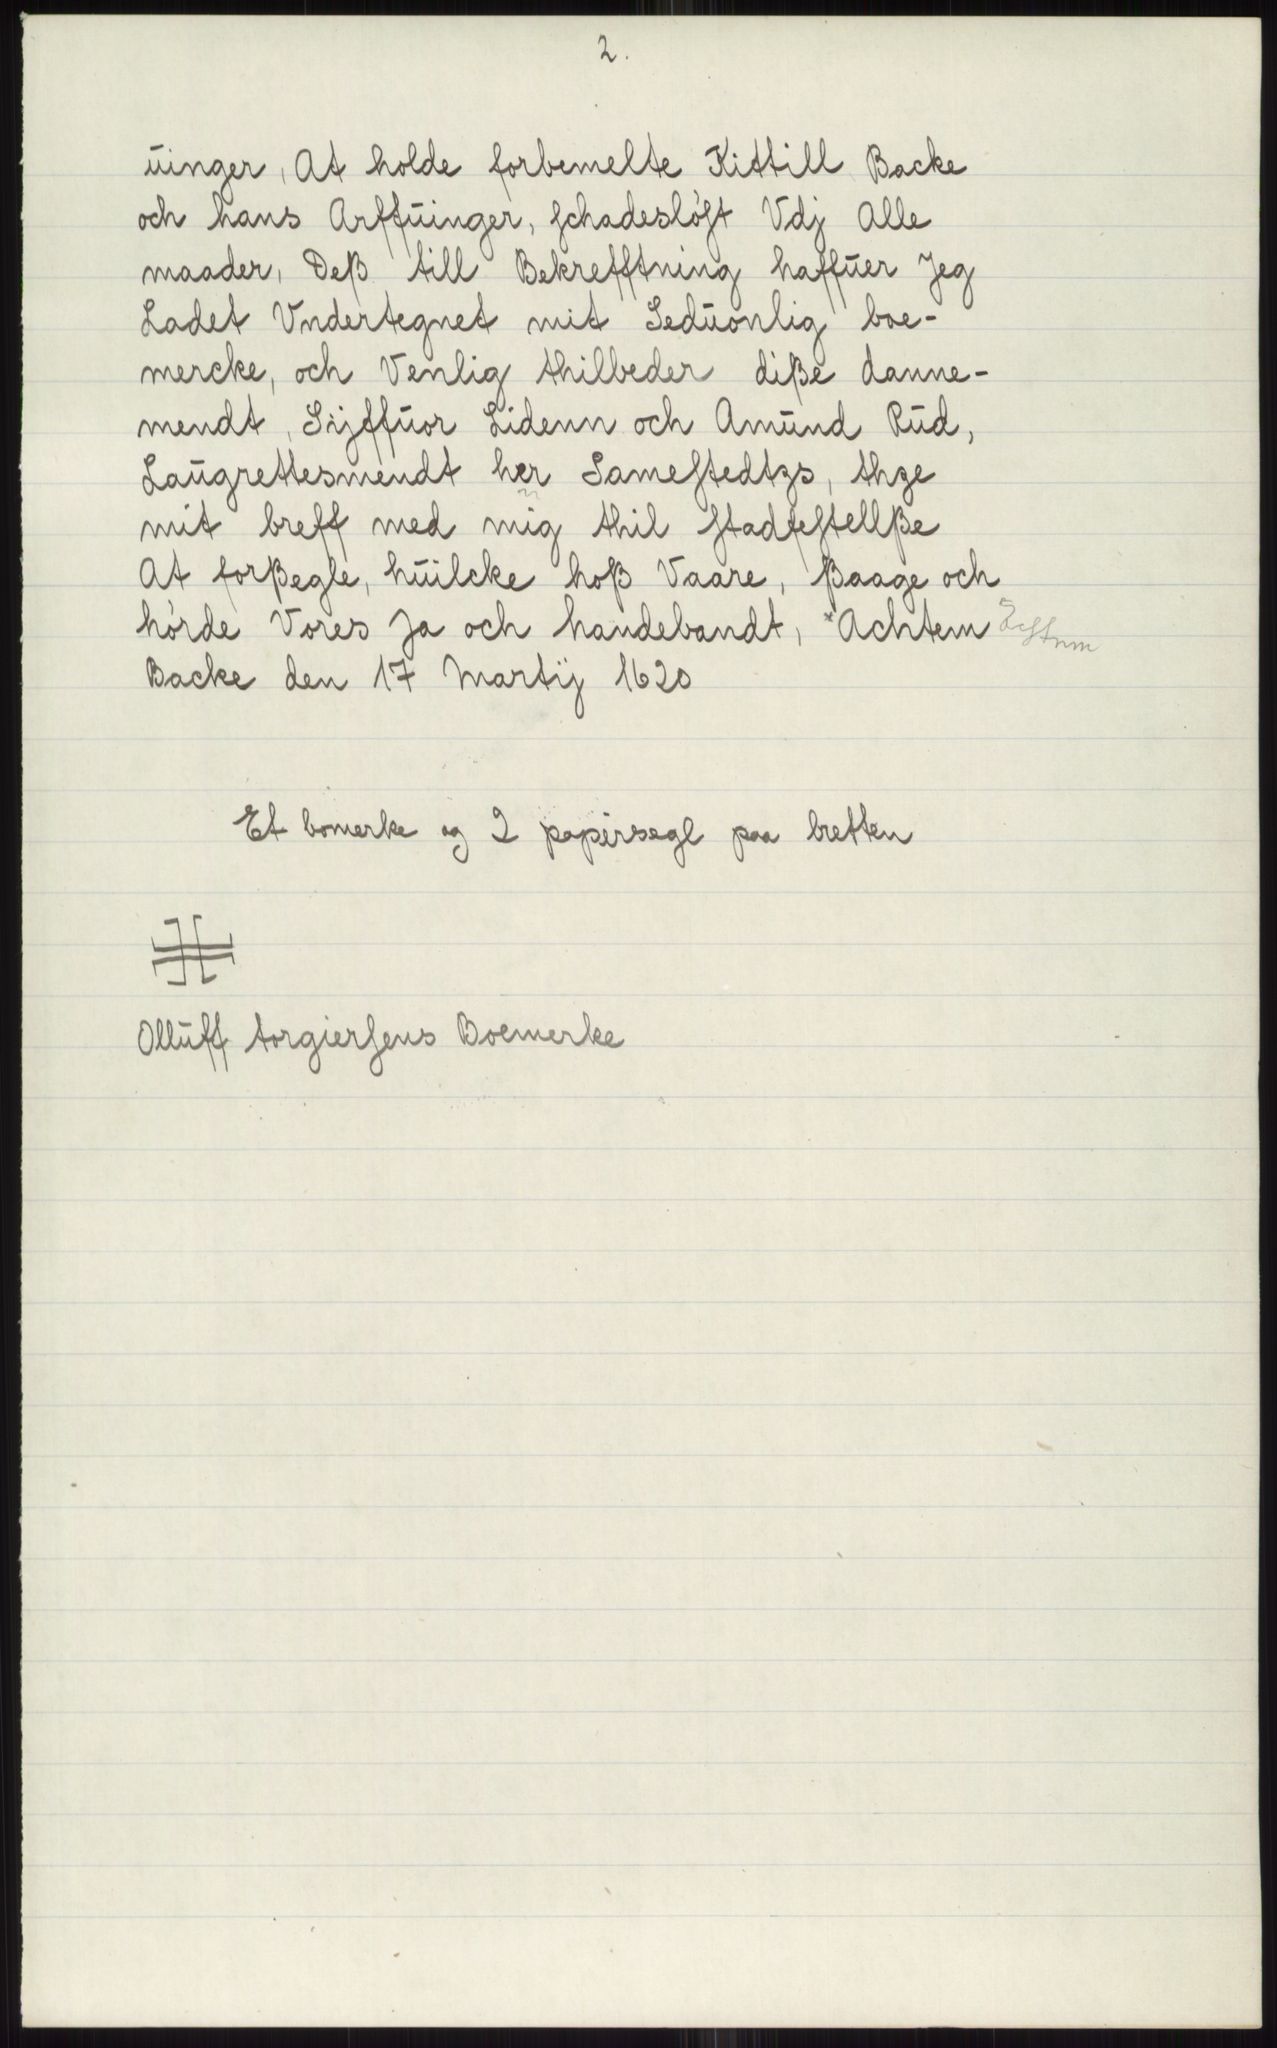 2.
ūinger, At holde forbemelte Kittill Backe
och hans Arffūinger, schadesløst Vdj Alle
maader, Deß till Bekrefftning haffūer Jeg
Ladet Vndertegnet mit Sedūonlig boe-
mercke, och Venlig thilbeder diße danne-
mendt, Sijffūor Lidenn och Amūnd Rūd,
Laūgrettesmendt her Samestedtzs, thze
mit breff med mig thil stadfestellße
At forßegle, hūilcke hoß Vaare, ßaage och
hørde Vores Ja och handebandt, *Achtem
Backe den 17 Martij 1620
Et bomerke og 2 papirsegl paa bretten
Ollūff torgiersens Boemerke